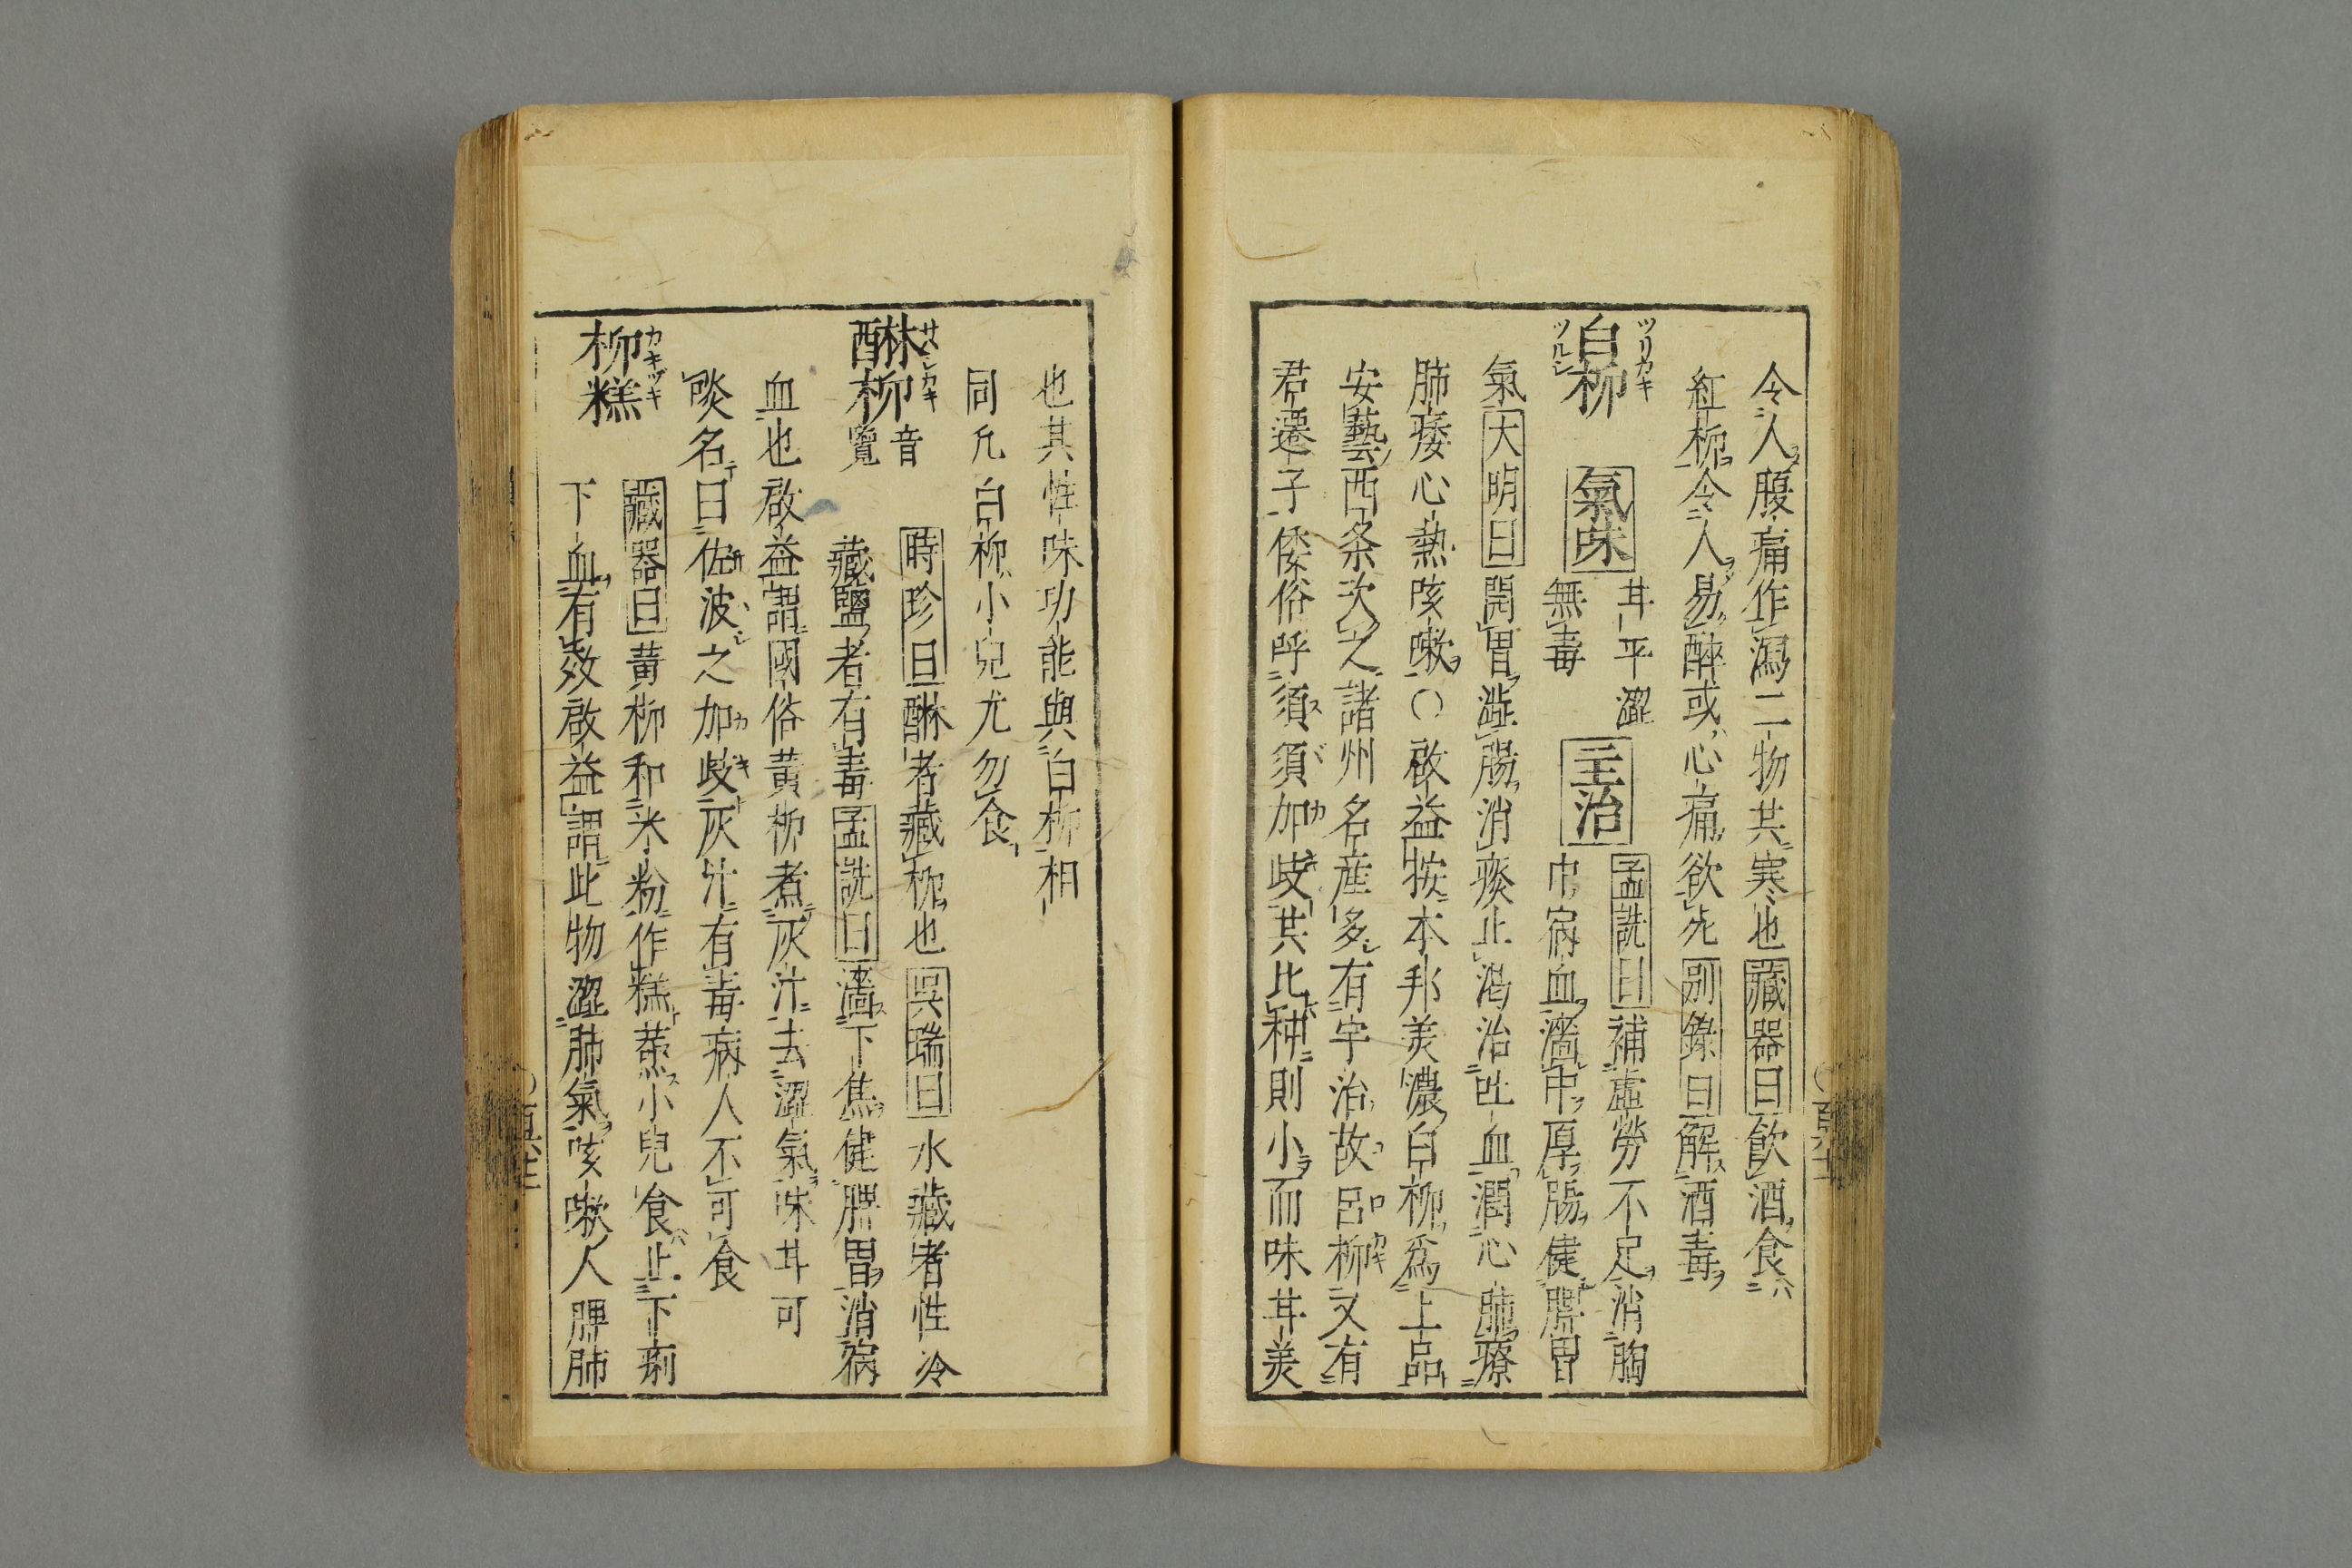 令人腹痛作瀉二物共寒也藏器曰飲酒食
紅柹令人易醉或心痛欲死別錄曰解酒毒
白柹 ツリカキ ツルシ 氣味 甘平澀
無毒 主治 孟詵曰補虛勞不足消胸
中宿血濇中厚腸健脾胃
氣大明曰開胃澁腸消痰止渴治吐血潤心肺療
肺痿心熱咳嗽○啟益按本邦美濃白柹為上品
安藝西条次之諸州名産多有宇治故呂柹又有
君遷子倭俗呼須須加歧其比種則小而味甘美
也其性味功能與白柹相
同凡白柹小兒尤勿食
醂柹 サハシカキ 音覽 時珍曰醂者藏柹也吳瑞曰水藏者性冷
藏鹽者有毒孟詵曰濇下焦健脾胃消宿
血也啟益謂國俗黃柹煮灰汁去澀氣味甘可
啖名曰佐波之加歧灰汁有毒病人不可食
柹糕 カキヅキ 藏器曰黃柹和米粉作糕蒸小兒食止下痢
下血有效啟益謂此物澀肺氣咳嗽人脾肺